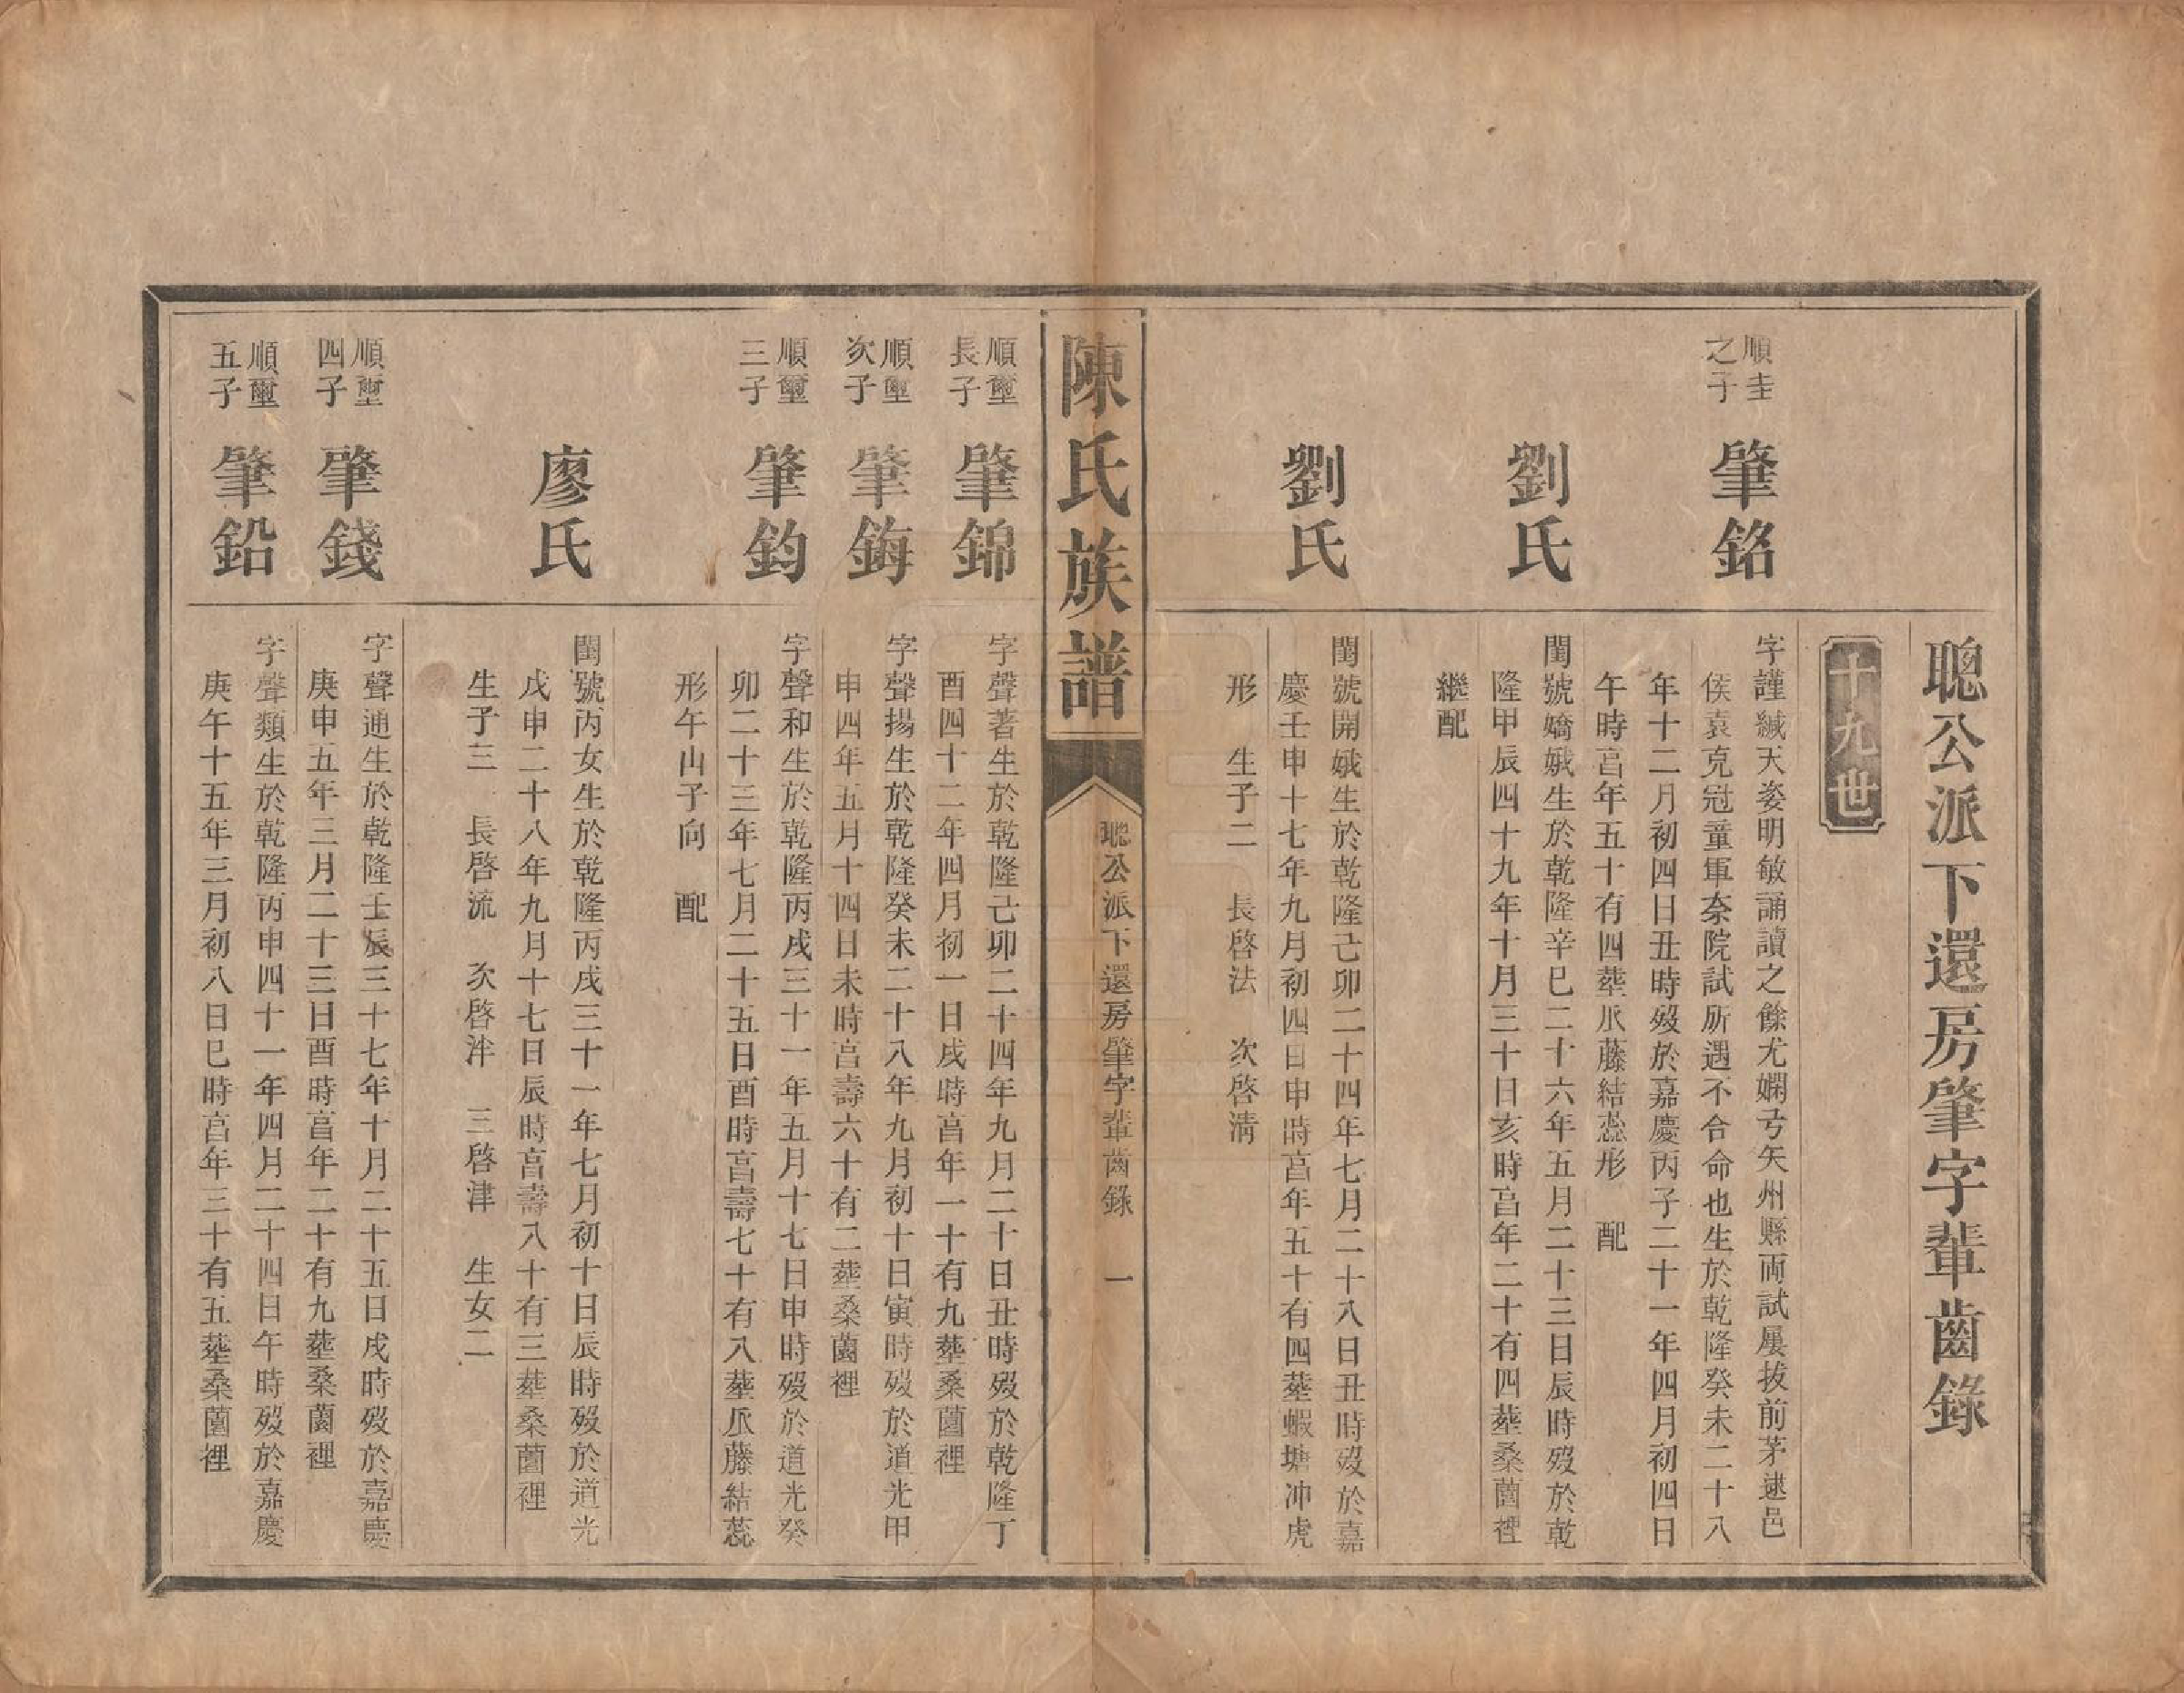 聰公派下還房肇字輩齒錄
十九世
順圭
之子
肇銘
字謹緘天姿明敏誦讀之餘尤嫻弓矢州縣両試屢拔前茅逮邑
侯袁克冠童軍奈院試所遇不合命也生於乾隆癸未二十八
年十二月初四日丑時歿於嘉慶丙子二十一年四月初四日
午時亯年五十有四塟瓜藤結蕊形 配
劉氏
閨號嬌娥生於乾隆辛巳二十六年五月二十三日辰時歿於乾
隆甲辰四十九年十月三十日亥時亯年二十有四塟桑薗裡
繼配
劉氏
閨號開娥生於乾隆己卯二十四年七月二十八日丑時歿於嘉
慶壬申十七年九月初四日申時亯年五十有四塟蝦塘冲虎
形 生子二 長啓法 次啓淸
陳氏族譜
聰公派下還房肇字輩齒錄 一
順璽
長子
肇錦
字聲著生於乾隆己卯二十四年九月二十日丑時歿於乾隆丁
酉四十二年四月初一日戌時亯年一十有九塟桑薗裡
順璽
次子
肇鋂
字聲揚生於乾隆癸未二十八年九月初十日寅時歿於道光甲
申四年五月十四日未時亯壽六十有二塟桑薗裡
順璽
三子
肇鈞
字聲和生於乾隆丙戌三十一年五月十七日申時歿於道光癸
卯二十三年七月二十五日酉時亯壽七十有八塟瓜藤結蕊
形午山子向 配
廖氏
閨號丙女生於乾隆丙戌三十一年七月初十日辰時歿於道光
戊申二十八年九月十七日辰時亯壽八十有三塟桑薗裡
生子三 長啓流 次啓泮 三啓津 生女二
順璽
四子
肇錢
字聲通生於乾隆壬辰三十七年十月二十五日戌時歿於嘉慶
庚申五年三月二十三日酉時亯年二十有九塟桑薗裡
順璽
五子
肇鉛
字聲類生於乾隆丙申四十一年四月二十四日午時歿於嘉慶
庚午十五年三月初八日巳時亯年三十有五塟桑薗裡